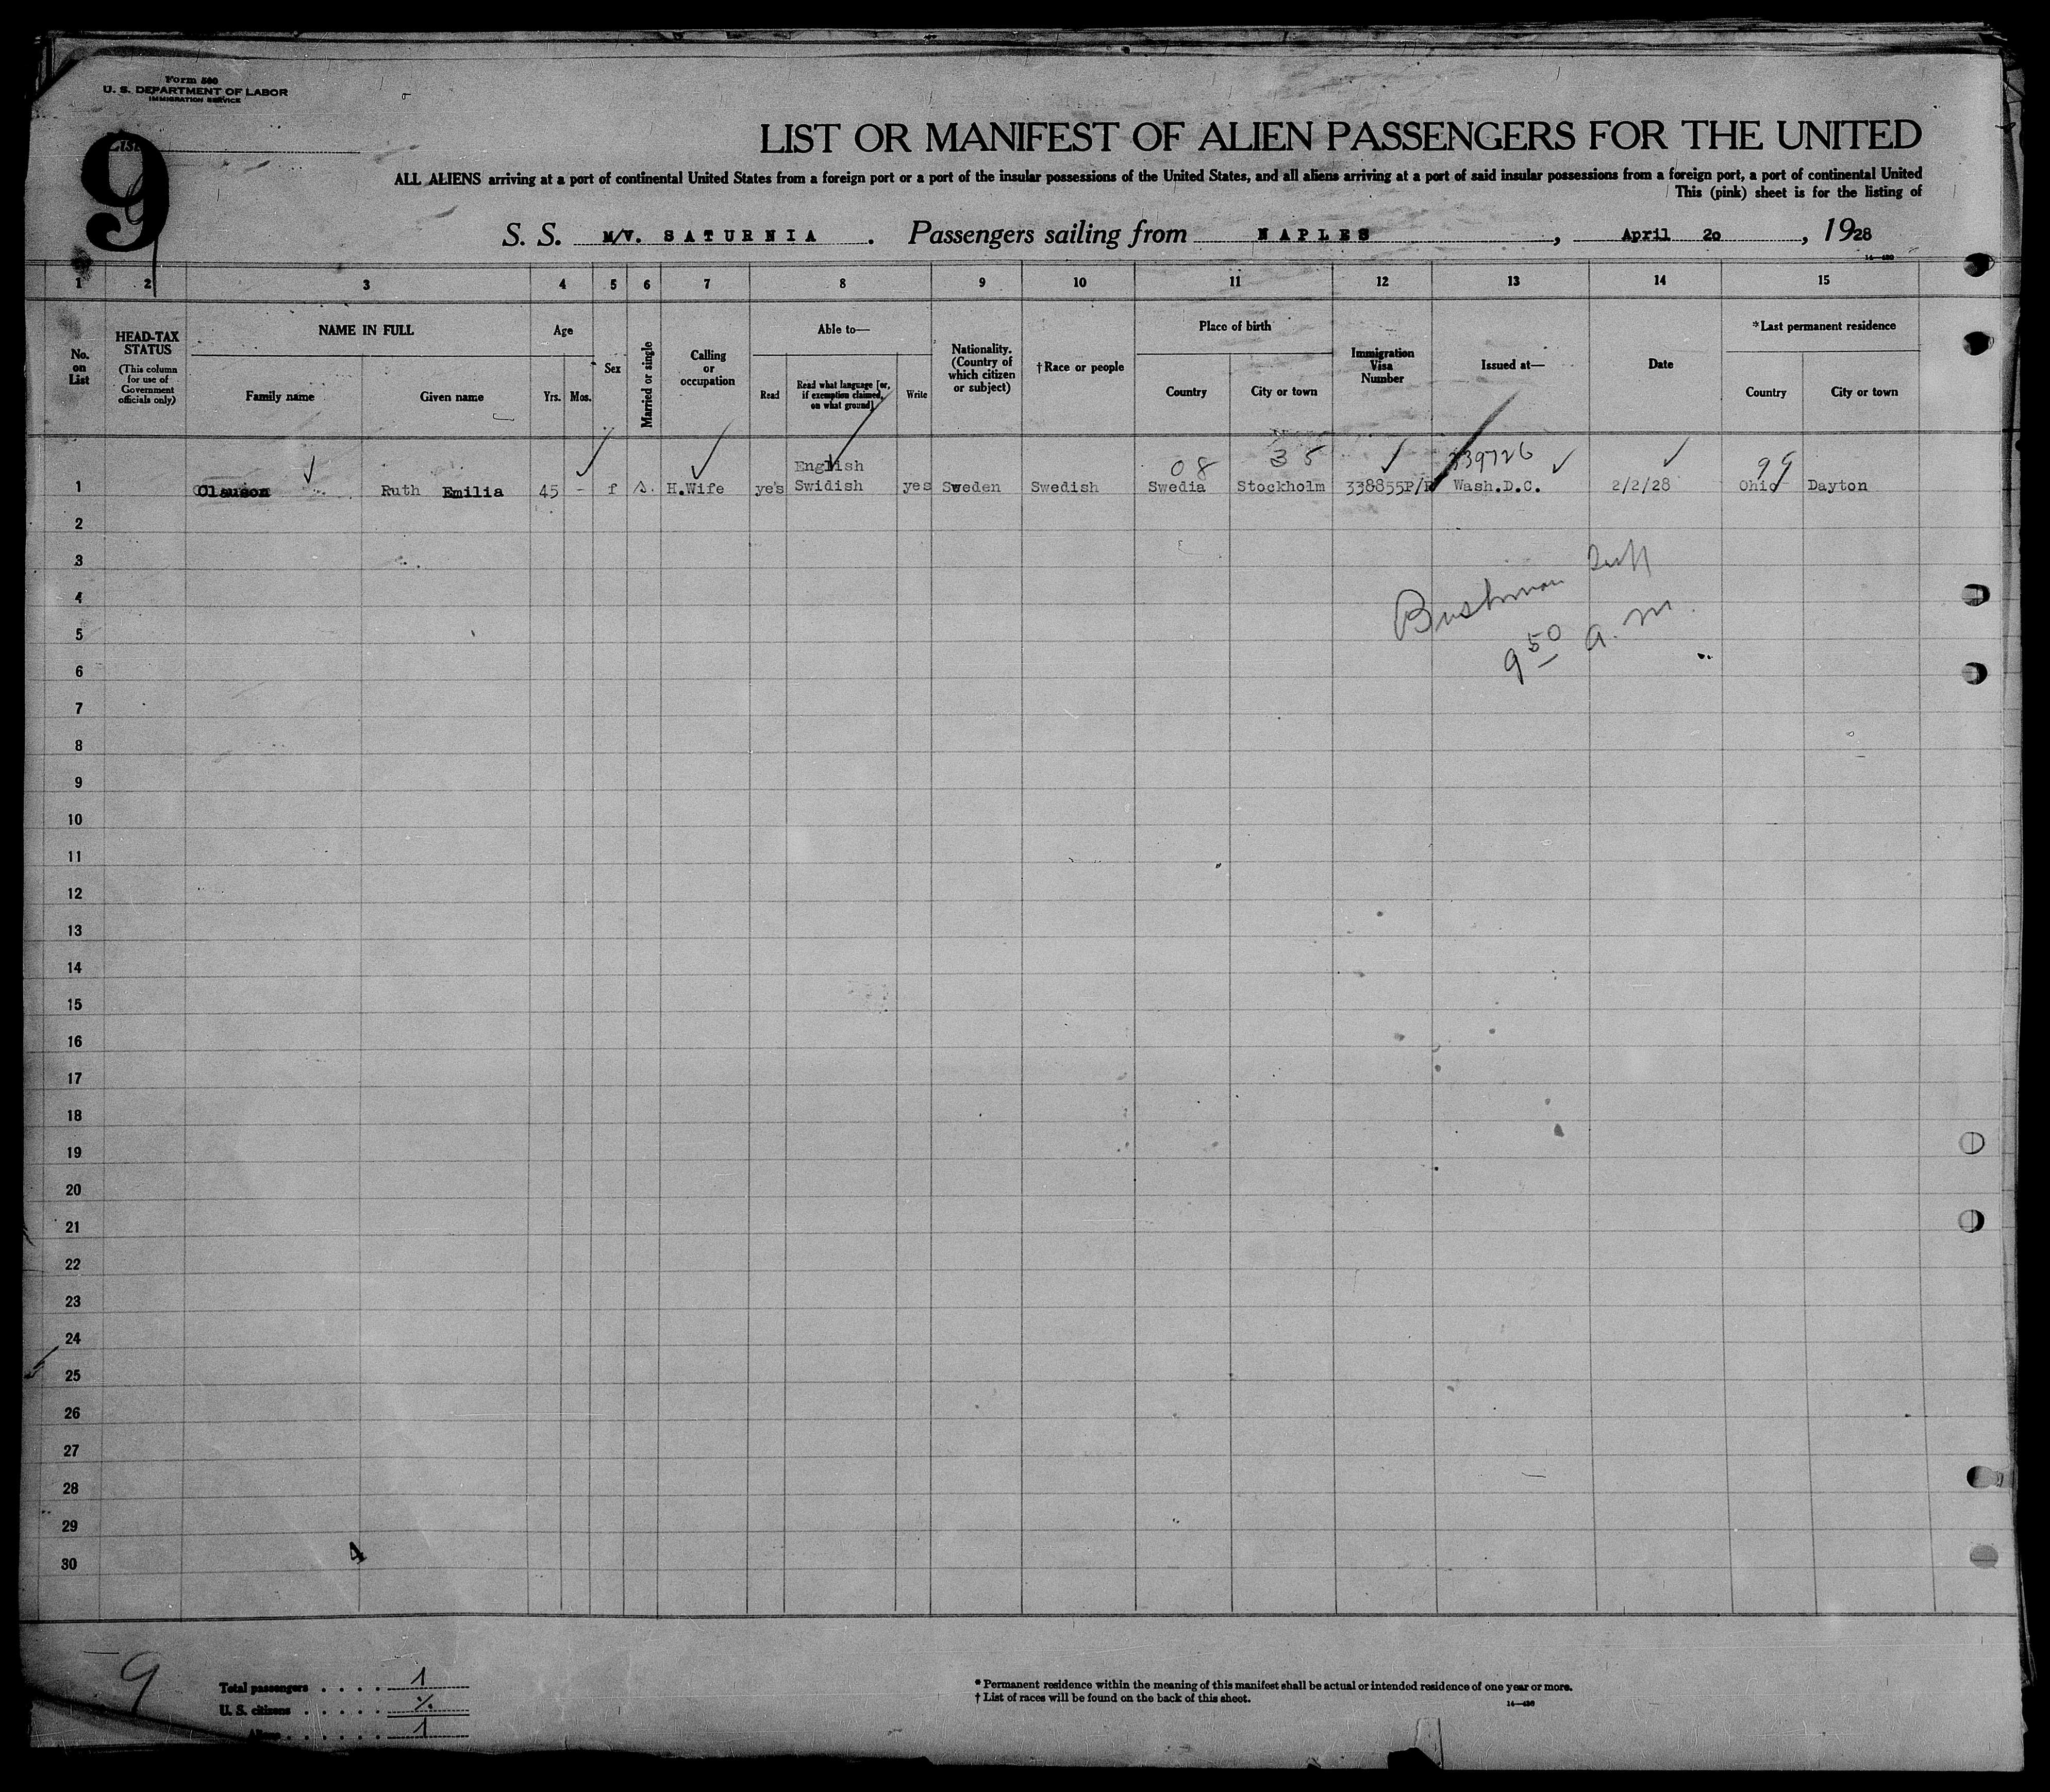 Form 500
U. S. DEPARTMENT OF LABOR
IMMIGRATION SERVICE
List
9
LIST OR MANIFEST OF ALIEN PASSENGERS FOR THE UNITED
ALL ALIENS arriving at a port of continental United States from a foreign port or a port of the insular possessions of the United States, and all aliens arriving at a port of said insular possessions from a foreign port, a port of continental United
This (pink) sheet is for the listing of
S. S. M/V. SATURNIA . Passengers sailing from NAPLES , April 2o , 1928
14—430
1 2 3 4 5 6 7 8 9 10 11 12 13 14 15
No. on List
HEAD-TAX STATUS (This column for use of Government officials only)
NAME IN FULL
Family name Given name
Age
Yrs. Mos.
Sex
Married or single
Calling or occupation
Able to—
Read Read what language [or, if exemption claimed, on what ground] Write
Nationality. (Country of which citizen or subject)
†Race or people
Place of birth
Country City or town
Immigration Visa Number
Issued at—
Date
*Last permanent residence
Country City or town
English 08 35 239726 99
1 Clauson Ruth Emilia 45 - f s. H.Wife yes Swidish yes Sweden Swedish Swedia Stockholm 338855P/R Wash.D.C. 2/2/28 Ohio Dayton
2
3
4 Bushman
5
6 9 50 a.m.
7
8
9
10
11
12
13
14
15
16
17
18
19
20
21
22
23
24
25
26
27
28
29
30
4
9
Total passengers . . . . 1
U. S. citizens . . . . . %
Aliens . . . . . . 1
* Permanent residence within the meaning of this manifest shall be actual or intended residence of one year or more.
† List of races will be found on the back of this sheet.
14—430